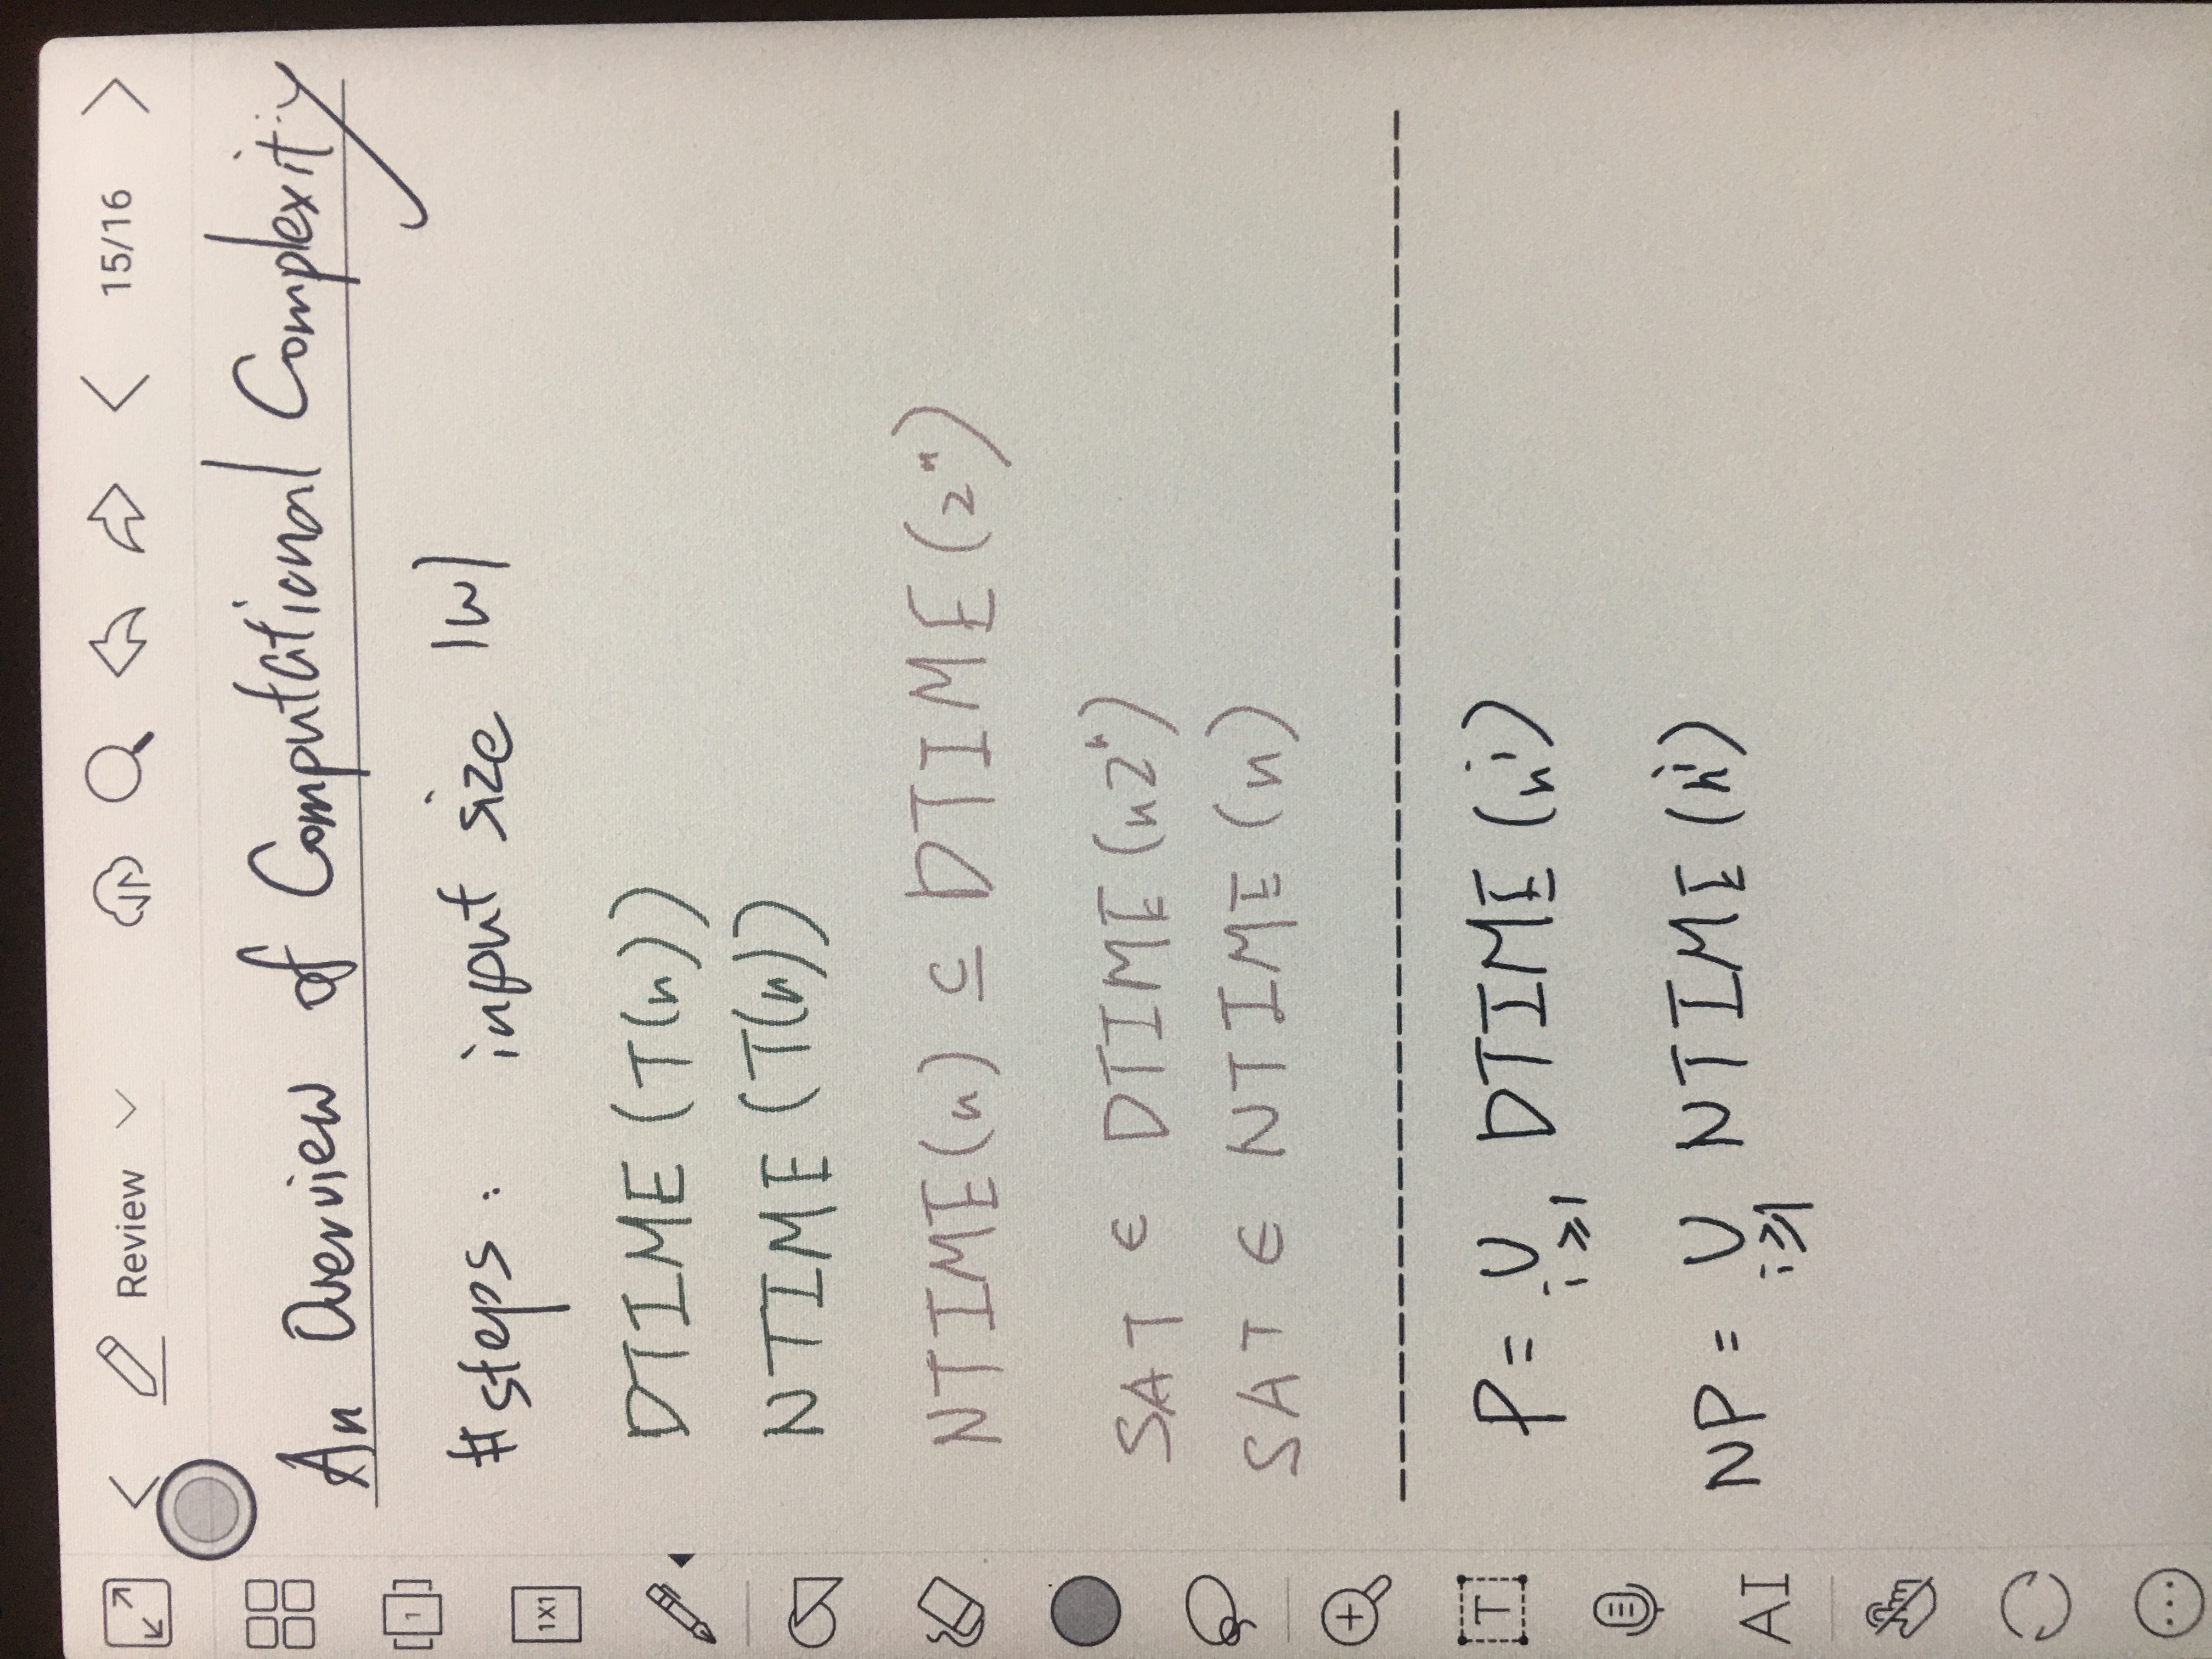 Review 15/16
An Overview of Computational Complexity
#steps: input size |w|
1
1X1
DTIME (T(n))
NTIME (T(n))
NTIME(n) ⊆ DTIME(2ⁿ)
SAT ∈ DTIME(n2ⁿ)
SAT ∈ NTIME (n)
T
P = ∪ DTIME (nⁱ)
i ⩾ 1
NP = ∪ NTIME (nⁱ)
i⩾1
AI